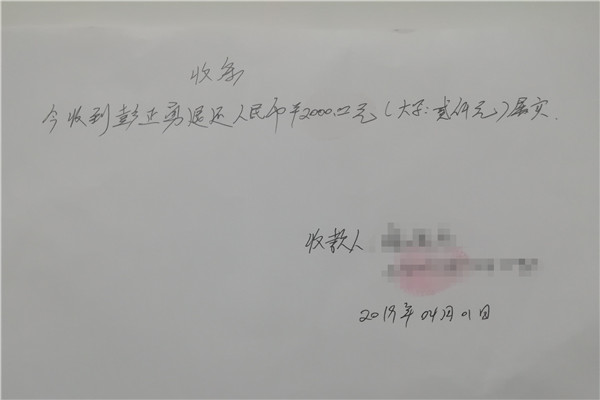 收条
今收到彭正勇退还人民币¥2000.00元(大写:贰仟元)属实.
收款人
2019年04月01日